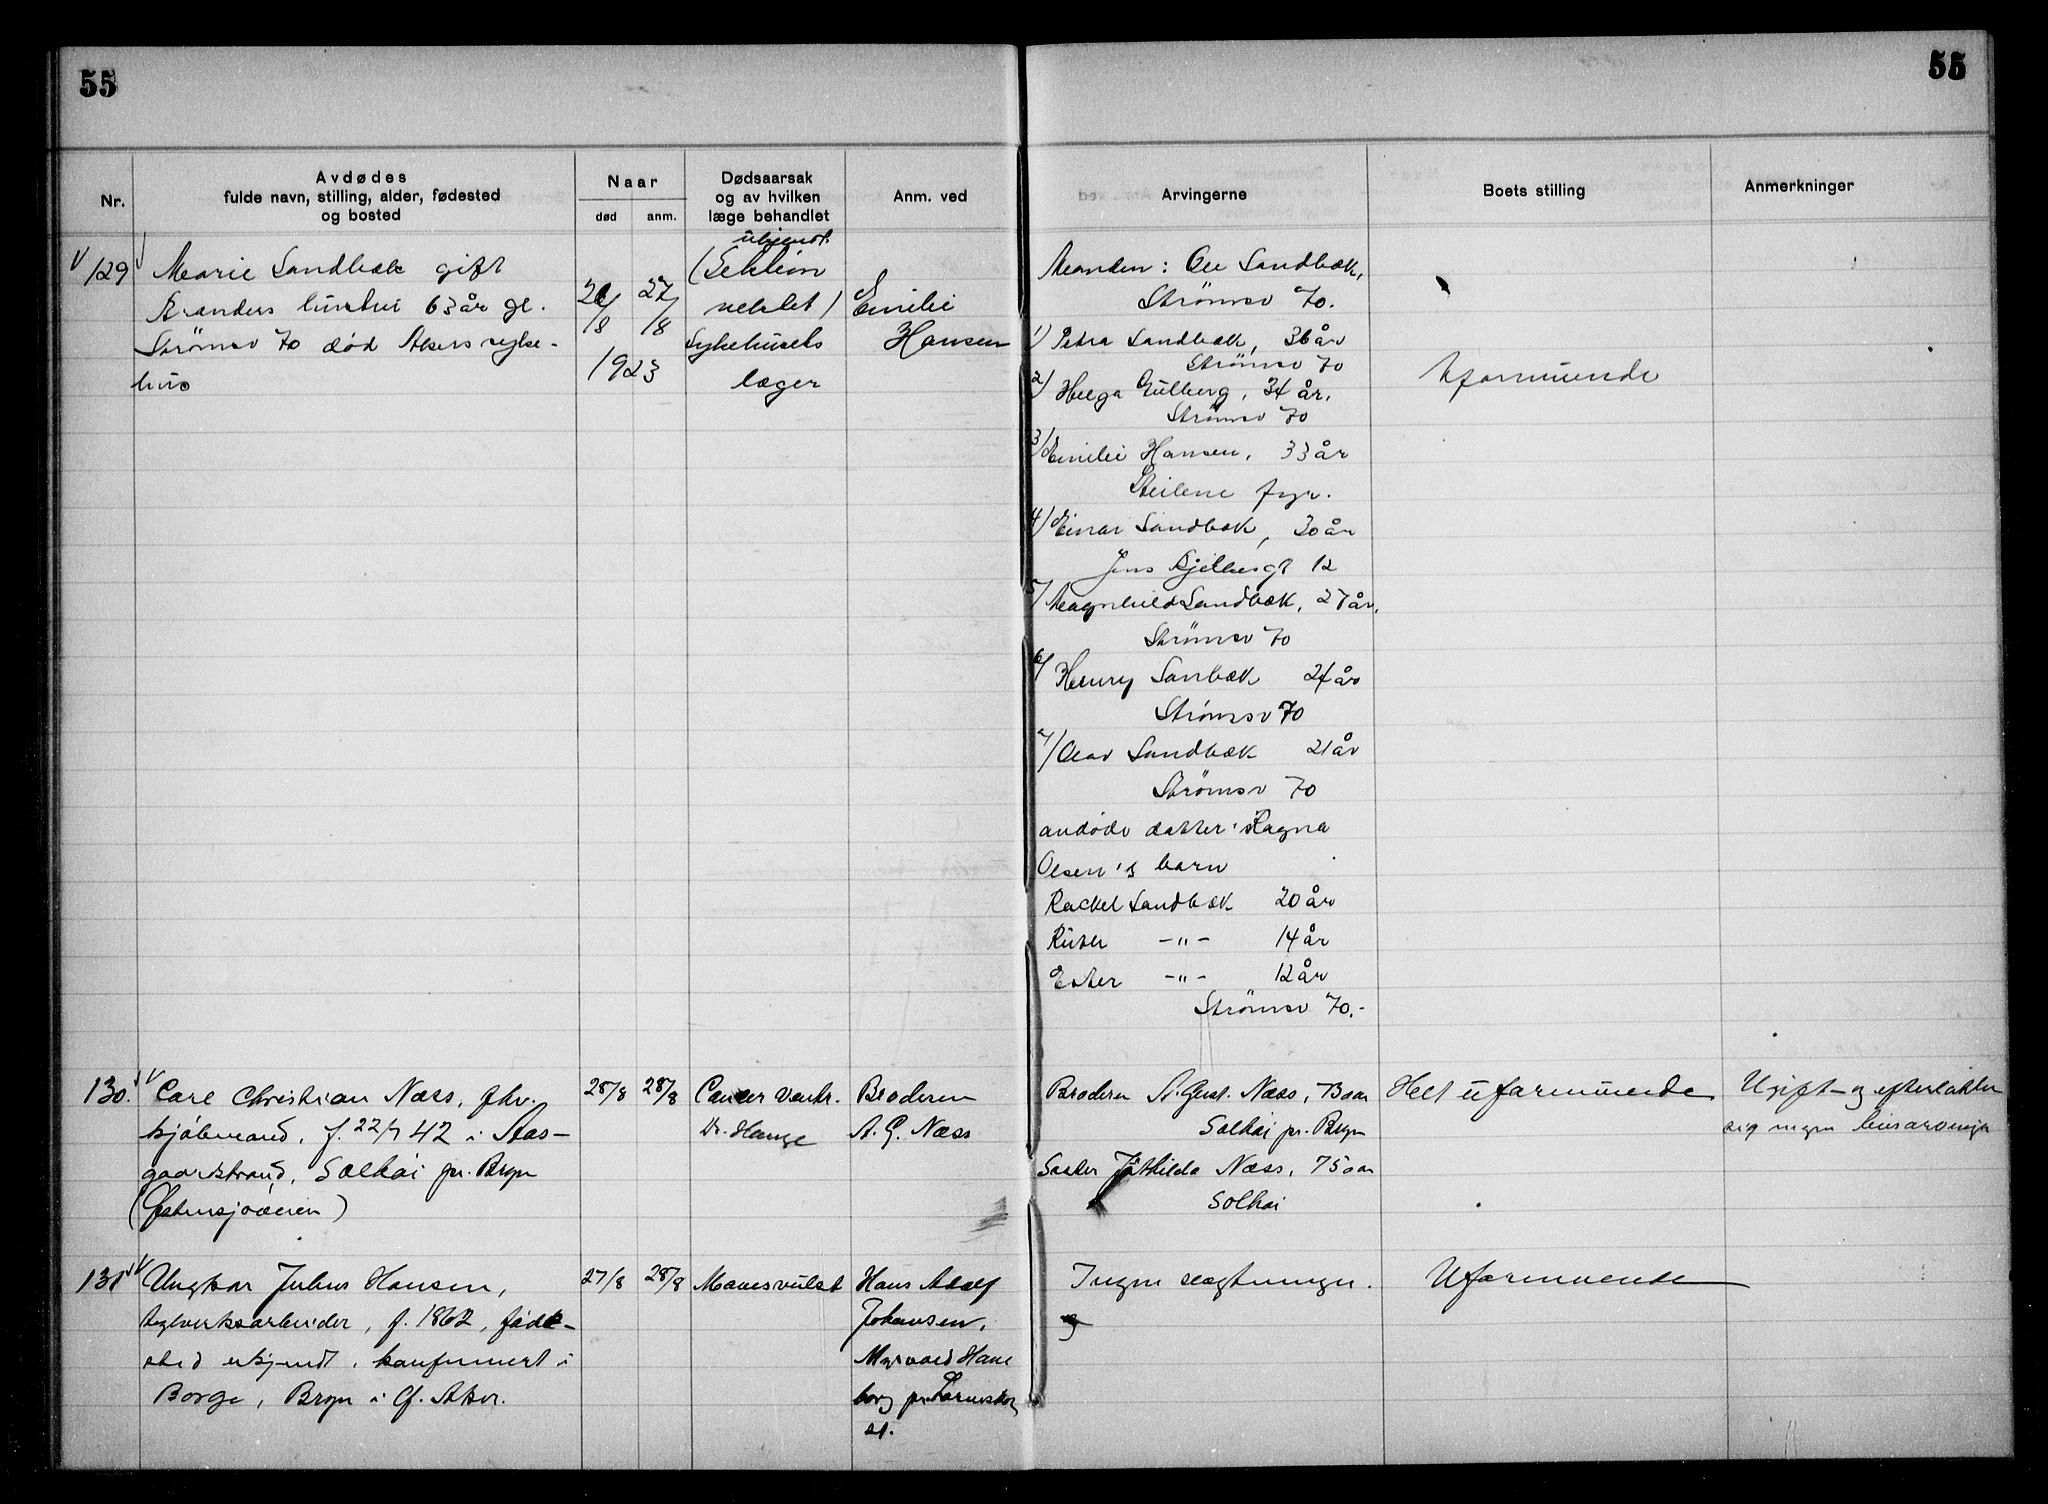 55
55
Nr.
Avdødes
fulde navn, stilling, alder, fødested
og bosted
Naar
død
anm.
Dødsaarsak
og av hvilken
læge behandlet
Anm. ved
Arvingerne
Boets stilling
Anmerkninger
129
Marie Sandbæk gift
hustru 63 år gl.
Strömsv 70 död Akers syke-
hus
/8
27/8
1923
ukjendt
(Sektion
nektet)
Sykehusets
læger
Emilie
Hansen
Manden: Ole Sandbæk,
Strömsv 70.
1) Petra Sandbæk, 36 år
Strömsv 70
2) Helga Gulberg, 34 år.
Strömsv 70
3) Emilie Hansen, 33 år
Steilene fyr.
4) Einar Sandbæk, 30 år
Jens Bjelkesgt 12
5) Magnhild Sandbæk, 27 år.
Strömsv 70
6) Henry Sanbæk 24 år
Strömsv 70
7) Olav Sandbæk 21 år
Strömsv 70
avdöde datter Ragna
Olsen's barn
Rackel Sandbæk 20 år
Ruter -"- 14 år
Ester -"- 12 år
Strömsv 70.-
Uformuende
130.
Carl Christian Næss, fhv.
kjøbmand, f. 22/7 42 i Aas-
gaardstrand, Solhøi pr. Bryn
(Østensjøveien)
28/8
28/8
Cancer ventr.
Dr. Hauge
Broderen
A. G. Næss
Broderen A. Gust. Næss, 73 aar
Solhøi pr. Bryn
Søster Mathilda Næss, 75 aar
Solhøi
Helt uformuende
Ugift og efterlater
sig ingen livsarvinger
131
Ungkar Julius Hansen,
teglverksarbeider, f. 1862, føde-
sted ukjendt, konfirmert i
Borge, Bryn i Ø. Aker.
27/8
28/8
Mavesvulst
Hans Adolf
Johansen,
Myrvold Hane
borg pr. Lørenskog
st.
Ingen slægtninger.
Uformuende